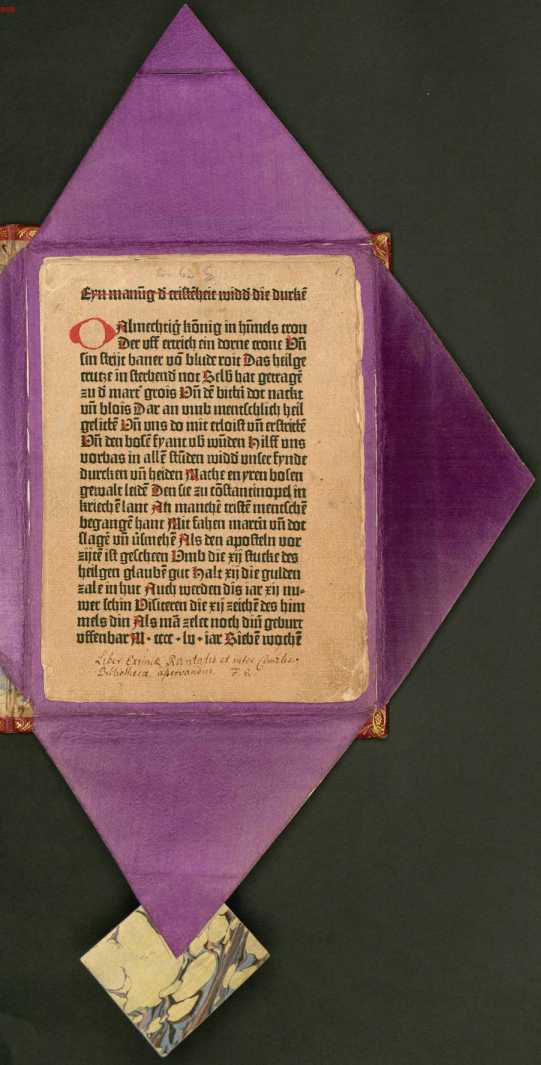 Eyn manũg d̃ cristẽheit widd̃ die durkẽ
1.
OAlmechtig kõnig in hĩmels tron
Der uff ertrich ein dorne crone Uñ
sin strijt baner võ blude roit Das heilge
crutze in sterbend not Selb hat getragẽ
zu d̃ mart̃ grois Uñ dẽ bittñ dot nackt
uñ blois Dar an umb menschlich heil
gelittẽ Uñ uns do mit erloist uñ erstrittẽ
Uñ den bosẽ fyant ub̃ wũden Hilff uns
vorbas in allẽ stũden widd̃ unser fynde
durcken uñ heiden Mache en yren bosen
gewalt leidẽ Den sie zu cõstantinopel in
kriechẽ lant An manchẽ cristẽ menschẽ
begangẽ hant Mit fahen martñ uñ dot
slagẽ uñ v̈smehẽ Als den aposteln vor
zijtẽ ist gescheen Umb die xij stucke des
heilgen glaubẽ gut Halt xij die gulden
zale in hut Auch werden dis iar xij nu-
wer schin Visiteren die xij zeichẽ des him
mels din Als mã zelet noch diñ geburt
uffenbar M · cccc · lv · iar Siebẽ wochẽ
Liber Eximiæ Raritatis et inter Cimelia
Bibliothecæ asservandus. F. G.